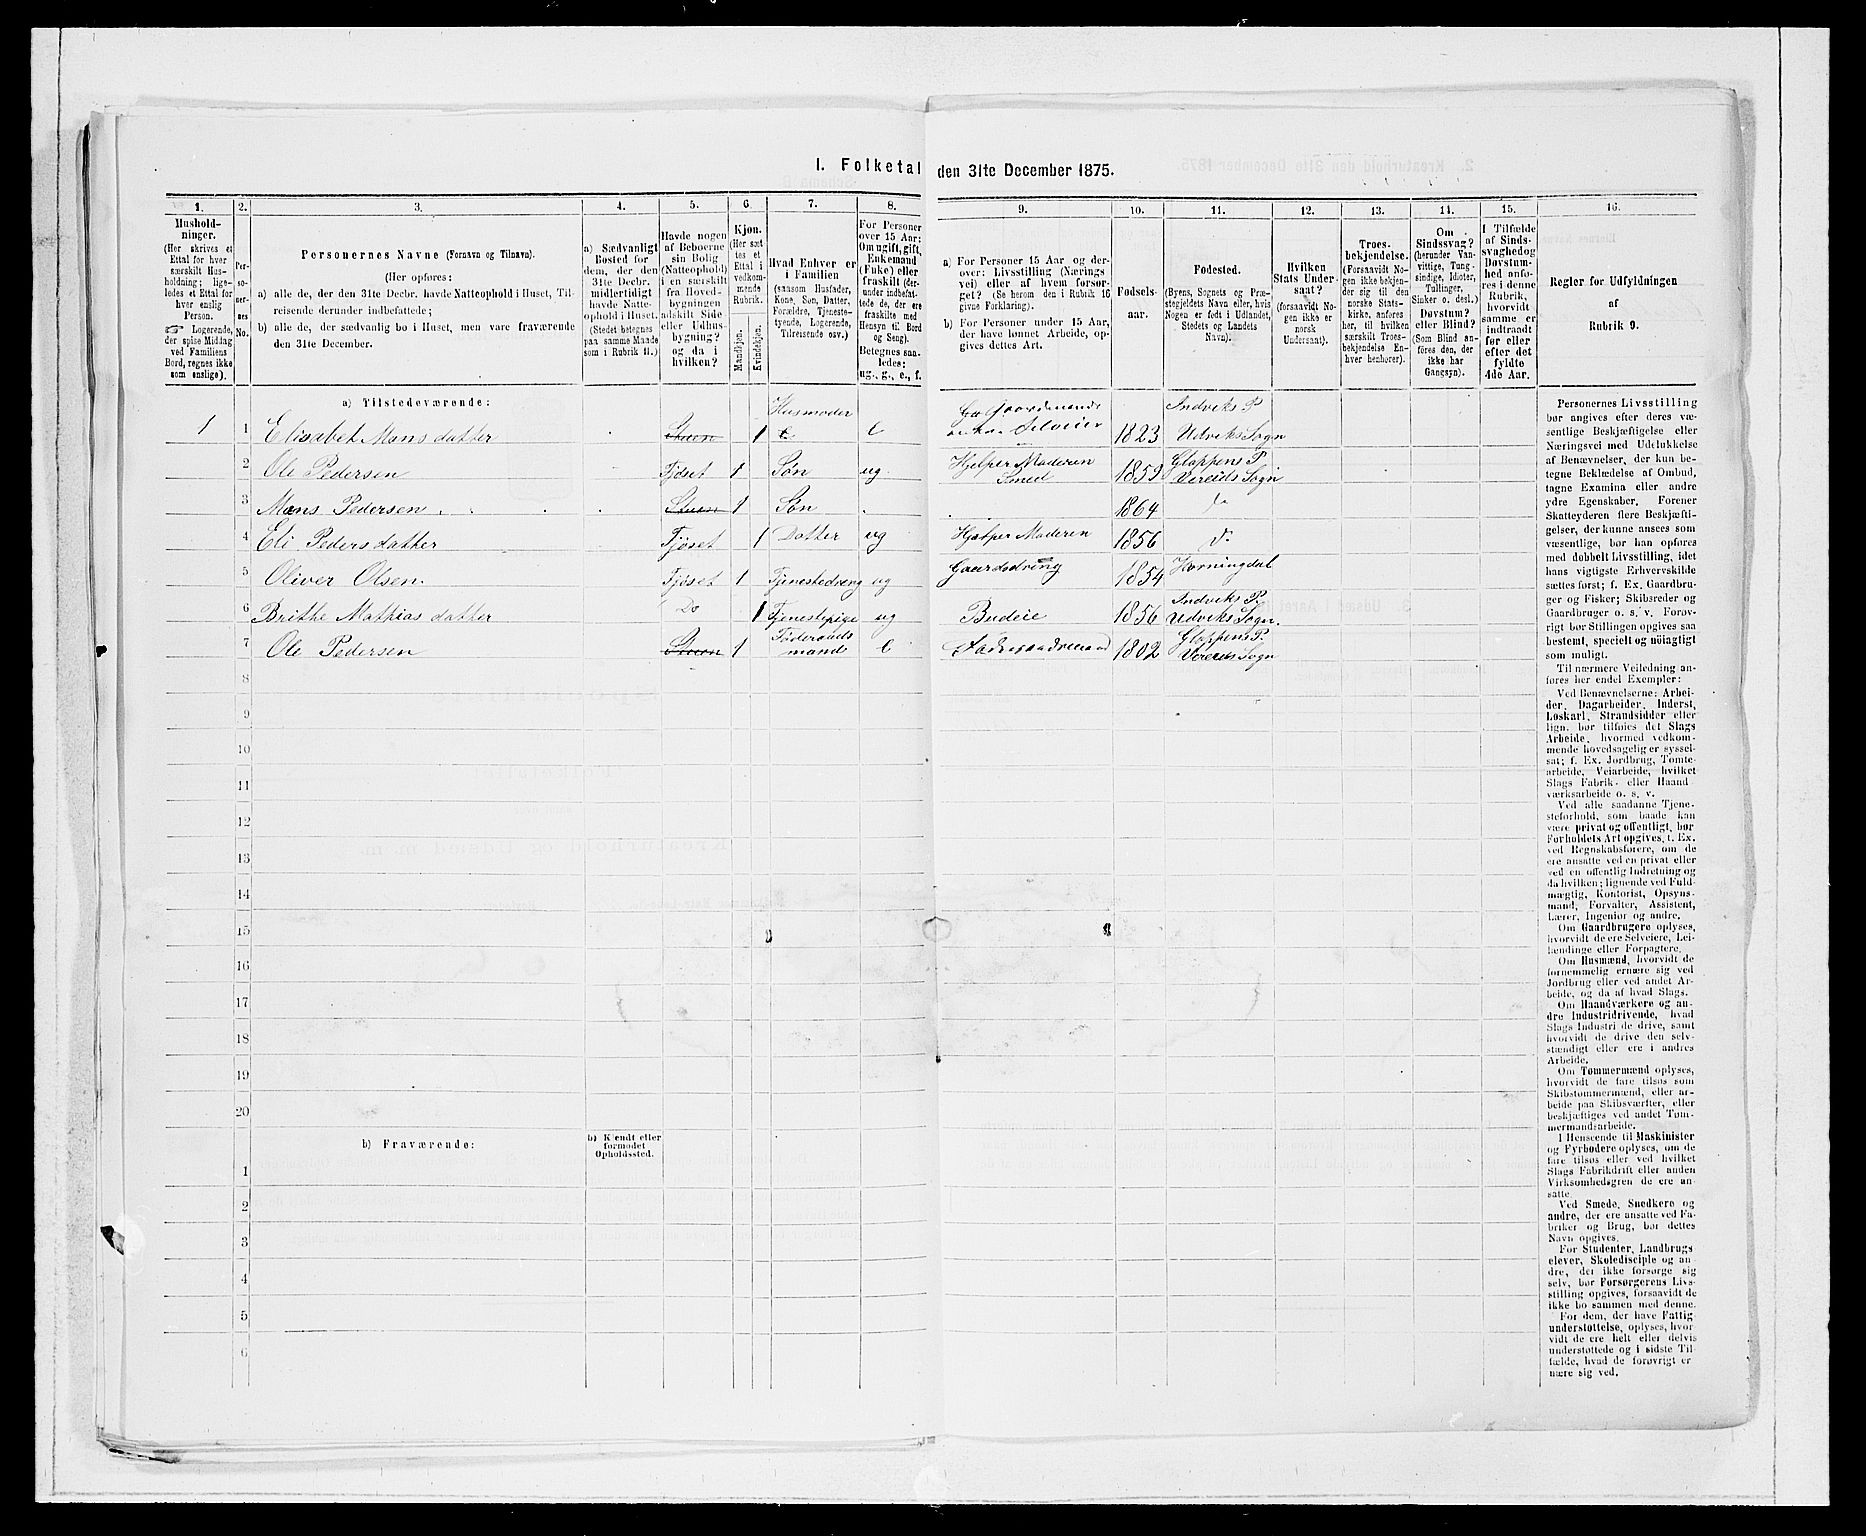 1. Folketal den 31te December 1875.
1.
Hushold-
ninger.
(Her skrives et
Ettal for hver
særskilt Hus-
holdning; lige-
ledes et Ettal for
hver enslig
Person.
Logerende,
der spise Middag
ved Familiens
Bord, regnes ikke
som enslige).
2.
Per-
soner-
nes
No.
3.
Personernes Navne (Fornavn og Tilnavn).
(Her opføres:
a) alle de, der den 31te Decbr. havde Natteophold i Huset, Til-
reisende derunder indbefattede;
b) alle de, der sædvanlig bo i Huset, men vare fraværende
den 31te December.
4.
a) Sædvanligt
Bosted for
dem, der den
31te Decbr.
midlertidigt
havde Natte-
ophold i Huset.
(Stedet betegnes
paa samme Maade
som i Rubrik 11.)
5.
Havde nogen
af Beboerne
sin Bolig
(Natteophold)
i en særskilt
fra Hoved-
bygningen
adskilt Side-
eller Udhus-
bygning?
og da i
hvilken?
6.
Kjøn.
(Her sæt-
tes et
Ettal i
vedkom-
mende
Rubrik.
Mandkjøn.
Kvindekjøn.
7.
Hvad Enhver er
i Familien
(saasom Husfader,
Kone, Søn, Datter,
Forældre, Tjeneste-
tyende, Logerende,
Tilreisende osv.)
8.
For Personer
over 15 Aar:
Om ugift, gift,
Enkemand
(Enke) eller
fraskilt (der-
under indbefat-
tede de, der ere
fraskilte med
Hensyn til Bord
og Seng).
Betegnes saa-
ledes:
ug., g., e., f.
9.
a) For Personer 15 Aar og der-
over: Livsstilling (Nærings-
vei) eller af hvem forsør-
get? (Se herom den i Rubrik 16
givne Forklaring).
b) For Personer under 15 Aar,
der have lønnet Arbeide, op-
gives dettes Art.
10.
Fødsels-
aar.
11.
Fødested.
(Byens, Sognets og Præ-
stegjeldets Navn eller, hvis
Nogen er født i Udlandet,
Stedets og Landets
Navn).
12.
Hvilken
Stats Under-
saat?
(forsaavidt No-
gen ikke er
norsk
Undersaat).
13.
Troes-
bekjendelse.
(Forsaavidt No-
gen ikke bekjen-
der sig til den
norske Stats-
kirke, anføres
her, til hvilken
særskilt Troes-
bekjendelse En-
hver henhører).
14.
Om
Sindssvag?
(herunder Van-
vittige, Tung-
sindige, Idioter,
Tullinger,
Sinker o. desl.)
Døvstum?
eller Blind?
(Som Blind an-
føres den, der
ikke har
Gangsyn).
15.
I Tilfælde
af Sinds-
svaghed og
Døvstum-
hed anfø-
res i denne
Rubrik,
hvorvidt
samme er
indtraadt
før eller
efter det
fyldte
4de Aar.
16.
Regler for Udfyldningen
af
Rubrik 9.
a) Tilstedeværende:
1 1 Elisabet Mons datter Stuen 1 Husmoder e Gaardmands enke Selveier 1823 Indviks P. Udviks Sogn
2 Ole Pedersen Fjøset 1 Søn ug Hjelper Moderen Smed 1859 Gloppens P. Vereids Sogn
3 Mons Pedersen Stuen 1 Søn 1864 Do
4 Eli Peders datter Fjøset 1 Datter ug Hjelper Moderen 1856 Do
5 Oliver Olsen Fjøset 1 Tjenestedreng ug Gaardsdreng 1854 Horningdal
6 Brithe Mathias datter Do 1 Tjenestepige ug Budeie 1856 Indviks P. Udviks Sogn.
7 Ole Pedersen Stuen 1 Föderaads mand e Föderaadsmand 1802 Gloppens P. Vereids Sogn
8
9
10
11
12
13
14
15
16
17
18
19
20
b) Fraværende:
b) Kjendt eller
formodet
Opholdssted.
1
2
3
4
5
6
Personernes Livsstilling
bør angives efter deres væ-
sentlige Beskjæftigelse eller
Næringsvei med Udelukkelse
af Benævnelser, der kun be-
tegne Beklædelse af Ombud,
tagne Examina eller andre
ydre Egenskaber. Forener
Skatteyderen flere Beskjæfti-
gelser, der kunne ansees som
væsentlige, bør han opføres
med dobbelt Livsstilling, idet
hans vigtigste Erhvervskilde
sættes først; f. Ex. Gaardbru-
ger og Fisker; Skibsreder og
Gaardbruger o. s. v. Forøv-
rigt bør Stillingen opgives saa
bestemt, specielt og nøiagtigt
som muligt.
Til nærmere Veiledning an-
føres her endel Exempler:
Ved Benævnelserne: Arbei-
der, Dagarbeider, Inderst,
Løskarl, Strandsidder eller
lign. bør tilføies det Slags
Arbeide, hvormed vedkom-
mende hovedsagelig er syssel-
sat; f. Ex. Jordbrug, Tomte-
arbeide, Veiarbeide, hvilket
Slags Fabrik- eller Haand-
værksarbeide o. s. v.
Ved alle saadanne Tjene-
steforhold, som baade kan
være privat og offentligt, bør
Forholdets Art opgives, t. Ex.
ved Regnskabsførere, om de
ere ansatte ved en privat eller
ved en offentlig Indretning og
da hvilken; lignende ved Fuld-
mægtig, Kontorist, Opsyns-
mand, Forvalter, Assistent,
Lærer, Ingeniør og andre.
Om Gaardbrugere oplyses,
hvorvidt de ere Selveiere, Lei-
lændinge eller Forpagtere.
Om Husmænd, hvorvidt de
fornemmelig ernære sig ved
Jordbrug eller ved andet Ar-
beide, og da af hvad Slags.
Om Haandværkere og an-
dre Industridrivende, hvad
Slags Industri de drive, samt
hvorvidt de drive den selv-
stændigt eller ere i andres
Arbeide.
Om Tømmermænd oplyses,
hvorvidt de fare tilsøs som
Skibstømmermænd, eller ar-
beide paa Skibsværfter, eller
beskjæftiges ved andet Tøm-
mermandsarbeide.
I Henseende til Maskinister
og Fyrbødere oplyses, om de
fare tilsøs eller ved hvilket
Slags Fabrikdrift eller anden
Virksomhedsgren de ere an-
satte.
Ved Smede, Snedkere og
andre, der ere ansatte ved Fa-
briker og Brug, bør dettes
Navn opgives.
For Studenter, Landbrugs-
elever, Skoledisciple og an-
dre, der ikke forsørge sig
selv, bør Forsørgerens Livs-
stilling opgives, forsaavidt de
ikke bo sammen med denne.
For dem, der have Fattig-
understøttelse, oplyses, hvor-
vidt de ere helt eller delvis
understøttede og i sidste Til-
fælde, hvad de forøvrigt er-
nære sig ved.